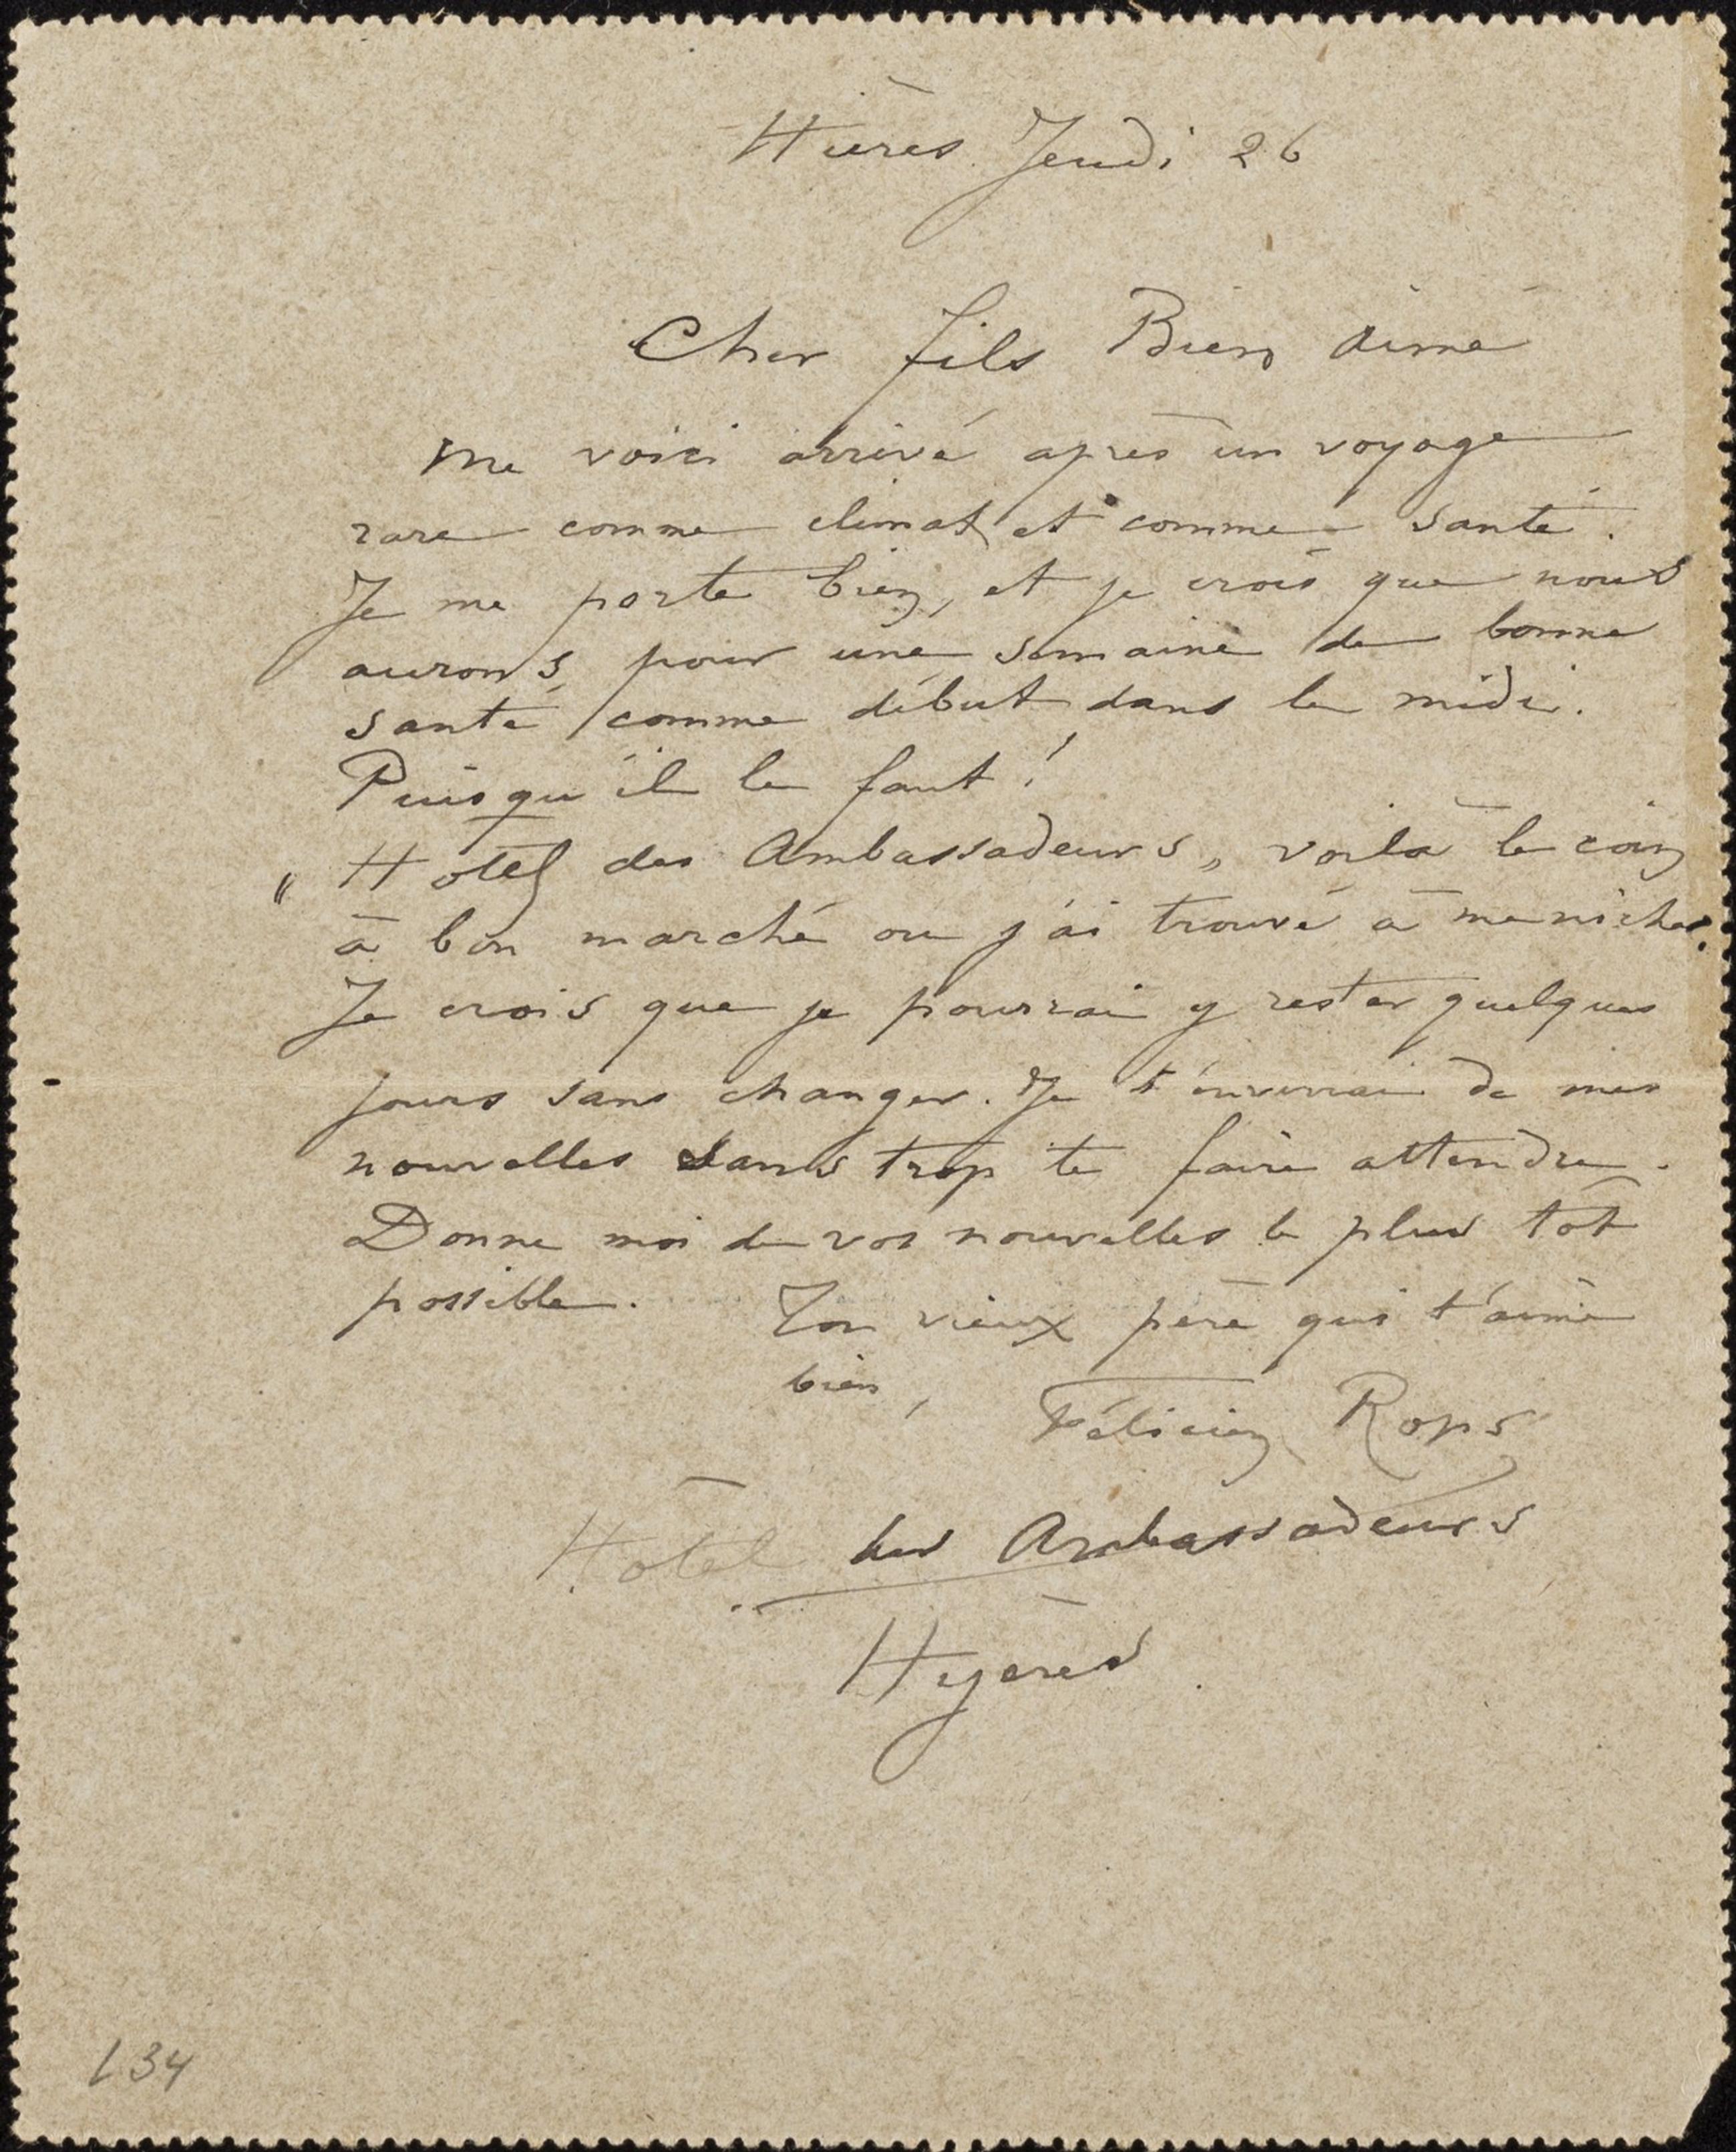 Hières Jeudi 26
Cher fils Bien aimé
Me voici arrivé après un voyage
rare comme climat et comme santé.
Je me porte bien, et je crois que nous
aurons, pour une semaine de bonne
santé, comme début dans le midi.
Puisqu'il le faut !
" Hôtel des Ambassadeurs „ voilà le coin
à bon marché ou j'ai trouvé à me nicher.
Je crois que je pourrai y rester quelques
jours sans changer. Je t'enverrai de mes
nouvelles sans trop te faire attendre.
Donne moi de vos nouvelles le plus tôt
possible. Ton vieux père qui t'aime
bien,
Félicien Rops
Hôtel des Ambassadeurs
Hyères
L34